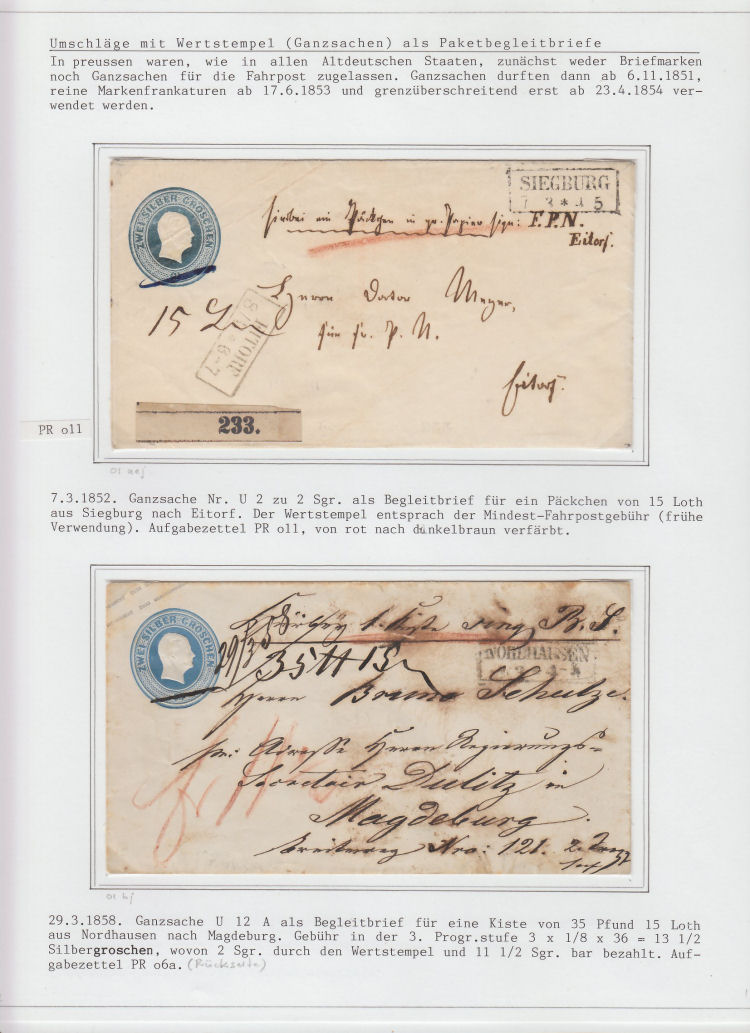 Umschläge mit Wertstempel (Ganzsachen) als Paketbegleitbriefe
In preussen waren, wie in allen Altdeutschen Staaten, zunächst weder Briefmarken
noch Ganzsachen für die Fahrpost zugelassen. Ganzsachen durften dann ab 6.11.1851,
reine Markenfrankaturen ab 17.6.1853 und grenzüberschreitend erst ab 23.4.1854 ver-
wendet werden.
SIEGBURG
ZWEI SILBER GROSCHEN
F.P.N.
Eitorf.
Herrn Doctor Meyer,
15 L
EITORF
Eitorf.
233.
PR o11
7.3.1852. Ganzsache Nr. U 2 zu 2 Sgr. als Begleitbrief für ein Päckchen von 15 Loth
aus Siegburg nach Eitorf. Der Wertstempel entsprach der Mindest-Fahrpostgebühr (frühe
Verwendung). Aufgabezettel PR o11, von rot nach dunkelbraun verfärbt.
ZWEI SILBER GROSCHEN
B. S.
29/3
NORDHAUSEN
35 15
Herrn Bruno Schulze.
Adresse Herrn Regierungs=
Secretair Dulitz in
Magdeburg.
Breiteweg Nro: 121.
29.3.1858. Ganzsache U 12 A als Begleitbrief für eine Kiste von 35 Pfund 15 Loth
aus Nordhausen nach Magdeburg. Gebühr in der 3. Progr.stufe 3 x 1/8 x 36 = 13 1/2
Silbergroschen, wovon 2 Sgr. durch den Wertstempel und 11 1/2 Sgr. bar bezahlt. Auf-
gabezettel PR o6a. (Rückseite)